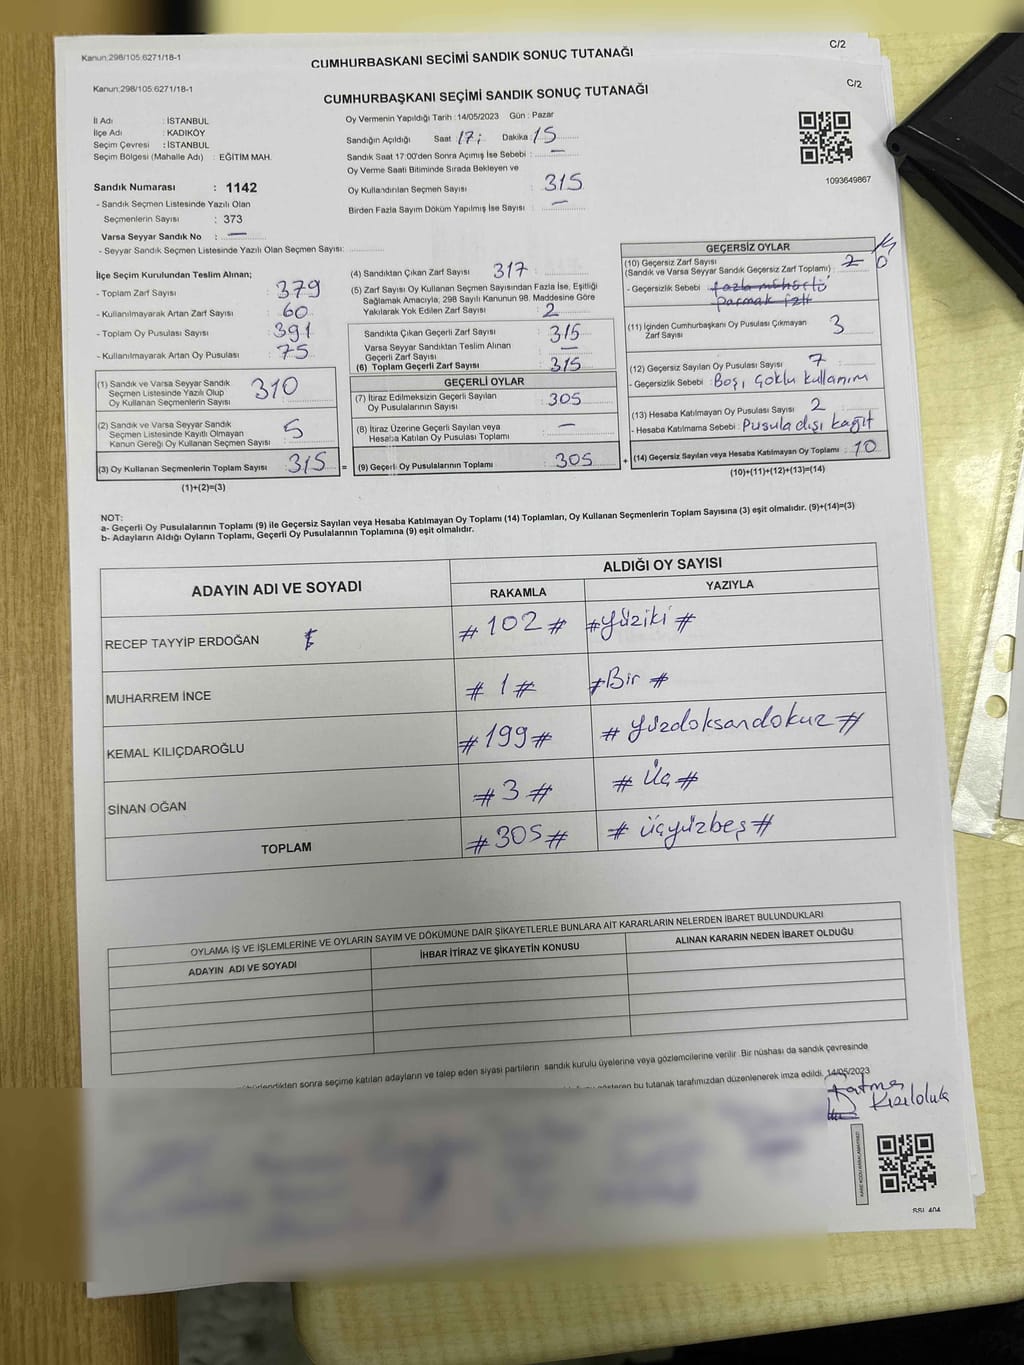 Kanun:298/105:6271/18-1
CUMHURBASKANI SEÇİMİ SANDIK SONUÇ TUTANAĞI
C/2
Kanun:298/105:6271/18-1
CUMHURBAŞKANI SEÇİMİ SANDIK SONUÇ TUTANAĞI
C/2
İl Adı : İSTANBUL
İlçe Adı : KADIKÖY
Seçim Çevresi : İSTANBUL
Seçim Bölgesi (Mahalle Adı) : EĞİTİM MAH.
Sandık Numarası : 1142
- Sandık Seçmen Listesinde Yazılı Olan
Seçmenlerin Sayısı : 373
Varsa Seyyar Sandık No : —
- Seyyar Sandık Seçmen Listesinde Yazılı Olan Seçmen Sayısı:
Oy Vermenin Yapıldığı Tarih : 14/05/2023 Gün : Pazar
Sandığın Açıldığı Saat 17: Dakika : 15
Sandık Saat 17:00'den Sonra Açımış İse Sebebi : —
Oy Verme Saati Bitiminde Sırada Bekleyen ve
Oy Kullandırılan Seçmen Sayısı : 315
Birden Fazla Sayım Döküm Yapılmış İse Sayısı : —
1093649867
İlçe Seçim Kurulundan Teslim Alınan;
- Toplam Zarf Sayısı : 379
- Kullanılmayarak Artan Zarf Sayısı : 60
- Toplam Oy Pusulası Sayısı : 391
- Kullanılmayarak Artan Oy Pusulası : 75
(1) Sandık ve Varsa Seyyar Sandık
Seçmen Listesinde Yazılı Olup
Oy Kullanan Seçmenlerin Sayısı : 310
(2) Sandık ve Varsa Seyyar Sandık
Seçmen Listesinde Kayıtlı Olmayan
Kanun Gereği Oy Kullanan Seçmen Sayısı : 5
(3) Oy Kullanan Seçmenlerin Toplam Sayısı : 315 =
(1)+(2)=(3)
(4) Sandıktan Çıkan Zarf Sayısı 317
(5) Zarf Sayısı Oy Kullanan Seçmen Sayısından Fazla İse, Eşitliği
Sağlamak Amacıyla, 298 Sayılı Kanunun 98. Maddesine Göre
Yakılarak Yok Edilen Zarf Sayısı : 2
Sandıkta Çıkan Geçerli Zarf Sayısı : 315
Varsa Seyyar Sandıktan Teslim Alınan
Geçerli Zarf Sayısı : —
(6) Toplam Geçerli Zarf Sayısı : 315
GEÇERLİ OYLAR
(7) İtiraz Edilmeksizin Geçerli Sayılan
Oy Pusulalarının Sayısı : 305
(8) İtiraz Üzerine Geçerli Sayılan veya
Hesaba Katılan Oy Pusulası Toplamı : —
(9) Geçerli Oy Pusulalarının Toplamı : 305 +
GEÇERSİZ OYLAR
(10) Geçersiz Zarf Sayısı
(Sandık ve Varsa Seyyar Sandık Geçersiz Zarf Toplamı) : 2 0
- Geçersizlik Sebebi : fazla mühürlü
parmak izli
(11) İçinden Cumhurbaşkanı Oy Pusulası Çıkmayan
Zarf Sayısı : 3
(12) Geçersiz Sayılan Oy Pusulası Sayısı : 7
- Geçersizlik Sebebi : Boş, çoklu kullanım
(13) Hesaba Katılmayan Oy Pusulası Sayısı : 2
- Hesaba Katılmama Sebebi : Pusula dışı kağıt
(14) Geçersiz Sayılan veya Hesaba Katılmayan Oy Toplamı : 10
(10)+(11)+(12)+(13)=(14)
NOT:
a- Geçerli Oy Pusulalarının Toplamı (9) ile Geçersiz Sayılan veya Hesaba Katılmayan Oy Toplamı (14) Toplamları, Oy Kullanan Seçmenlerin Toplam Sayısına (3) eşit olmalıdır. (9)+(14)=(3)
b- Adayların Aldığı Oyların Toplamı, Geçerli Oy Pusulalarının Toplamına (9) eşit olmalıdır.
ADAYIN ADI VE SOYADI
ALDIĞI OY SAYISI
RAKAMLA YAZIYLA
RECEP TAYYİP ERDOĞAN #102# #Yüziki#
MUHARREM İNCE #1# #Bir#
KEMAL KILIÇDAROĞLU #199# #Yüzdoksandokuz#
SİNAN OĞAN #3# #Üç#
TOPLAM #305# #üçyüzbeş#
OYLAMA İŞ VE İŞLEMLERİNE VE OYLARIN SAYIM VE DÖKÜMÜNE DAİR ŞİKAYETLERLE BUNLARA AİT KARARLARIN NELERDEN İBARET BULUNDUKLARI
ADAYIN ADI VE SOYADI İHBAR İTİRAZ VE ŞİKAYETİN KONUSU ALINAN KARARIN NEDEN İBARET OLDUĞU
sonra seçime katılan adayların ve talep eden siyasi partilerin sandık kurulu üyelerine veya gözlemcilerine verilir. Bir nüshası da sandık çevresinde
gösteren bu tutanak tarafımızdan düzenlenerek imza edildi. 14/05/2023
Fatma
Kızıloluk